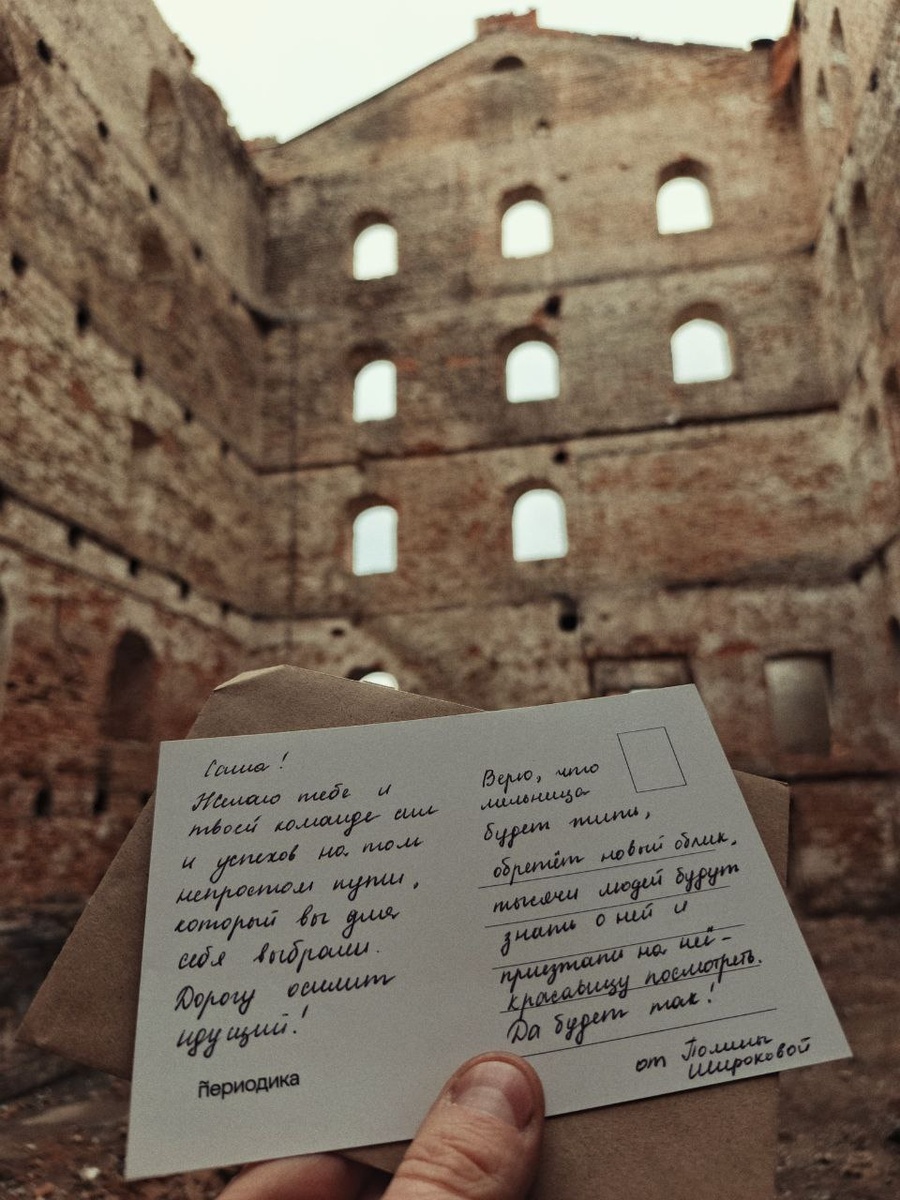 Саша!
Желаю тебе и
твоей команде сил
и успехов на том
непростом пути,
который вы для
себя выбрали.
Дорогу осилит
идущий!
Периодика
Верю, что
мельница
будет жить,
обретёт новый облик,
тысячи людей будут
знать о ней и
приезжать на неё -
красавицу посмотреть.
Да будет так!
от Полины
Широковой